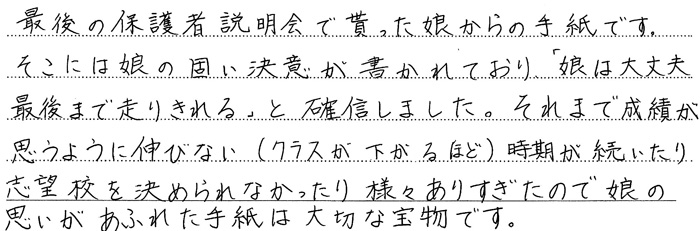 最後の保護者説明会で貰った娘からの手紙です。
そこには娘の固い決意が書かれており、「娘は大丈夫
最後まで走りきれる」と確信しました。それまで成績が
思うように伸びない(クラスが下がるほど)時期が続いたり
志望校を決められなかったり様々ありすぎたので娘の
思いがあふれた手紙は大切な宝物です。